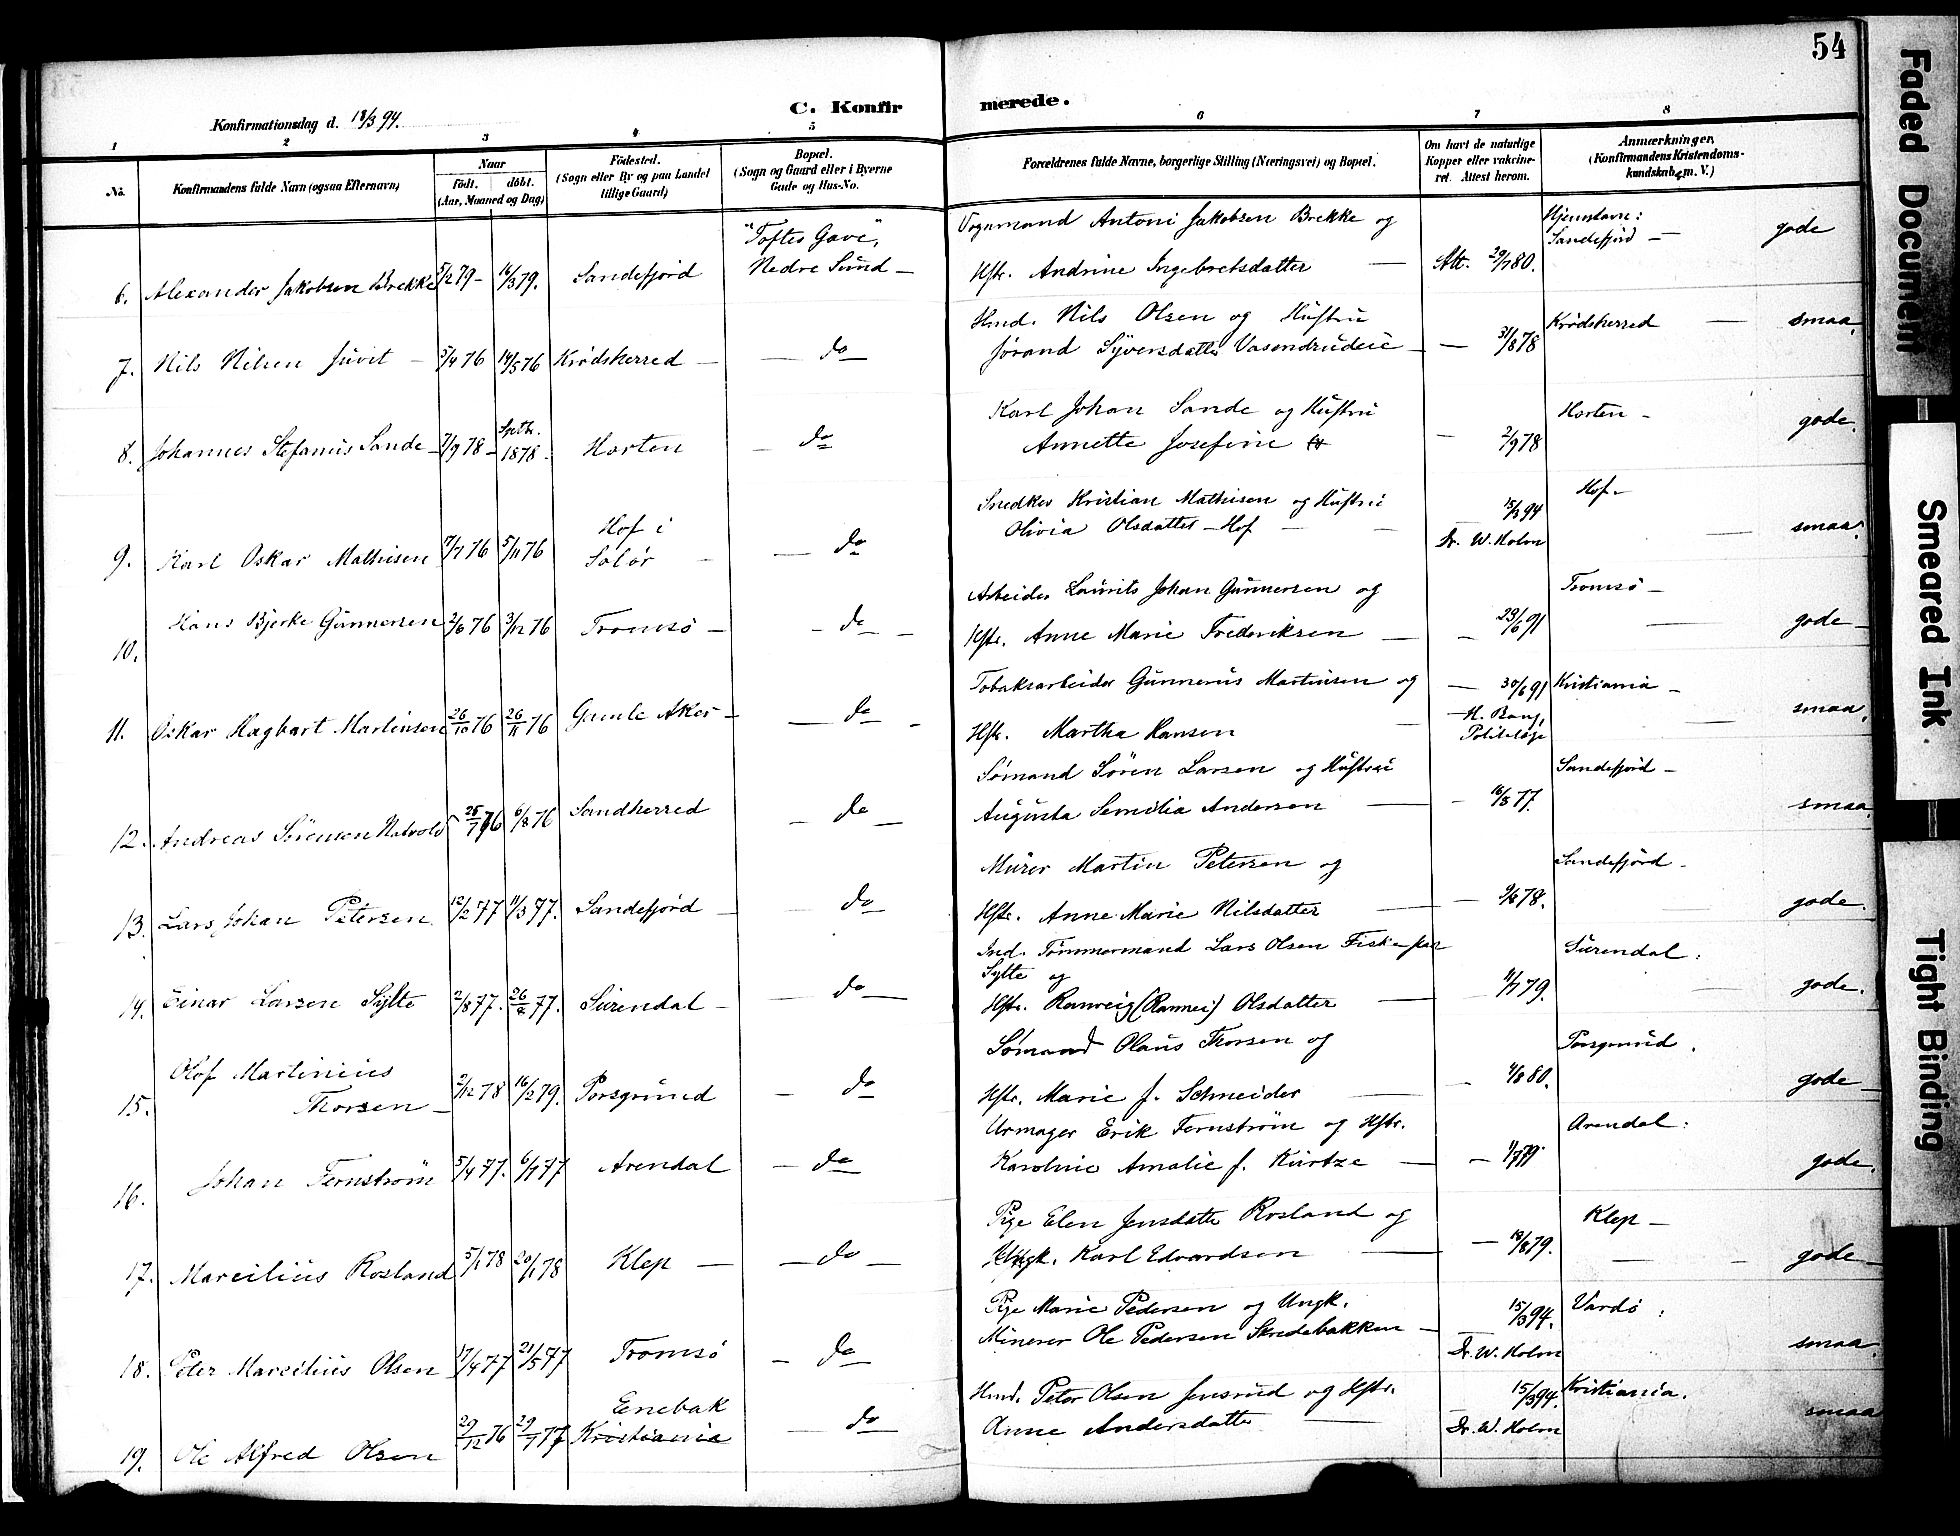 54
C. Konfirmerede.
Konfirmationsdag d. 18/3 94.
1 2 3 4 5 6 7 8
No. Konfirmandens fulde Navn (ogsaa Efternavn)
Naar
födt. döbt.
(Aar, Maaned og Dag)
Födested.
(Sogn eller By og paa Landet
tillige Gaard)
Bopæl.
(Sogn og Gaard eller i Byerne
Gade og Hus-No.
Forældrenes fulde Navne, borgerlige Stilling (Næringsvei) og Bopæl.
Om havt de naturlige
Kopper eller vakcine-
ret. Attest herom.
Anmærkninger,
(Konfirmandens Kristendoms-
kundskab m. V.)
6. Alexander Jakobsen Brekke 5/2 79 - 16/3 79. Sandefjord
"Toftes Gave",
Nedre Sund -
Vognmand Antoni Jakobsen Brekke og
Hstr. Andrine Ingebretsdatter
Att. 29/7 80.
Hjemstavn:
Sandefjord - gode
7. Nils Nilsen Juvet - 5/4 76 14/5 76 Krödsherred - do
Hmd. Nils Olsen og Hustru
Jørand Syversdatter Vasendrudeie - - 31/8 78
Krödsherred - smaa.
8. Johannes Stefanus Sande - 7/9 78 - Septbr. 1878. Horten - do
Karl Johan Sande og Hustru
Annette Josefine
- 2/9 78
Horten - gode.
9. Karl Oskar Mathisen 7/7 76 5/11 76
Hof i
Solör - do
Snedker Kristian Mathisen og Hustru
Olivia Olsdatter - Hof -
15/3 94
Dr. W. Holm
Hof. - smaa.
10. Hans Bjerke Gunnersen 2/6 76 3/12 76 Tromsö - do -
Arbeider Laurits Johan Gunnersen og
Hstr. Anne Marie Frederiksen -
- 23/6 91
Tromsö - gode -
11. Oskar Hagbart Martinsen 26/10 76 26/11 76 Gamle Aker - do -
Tobaksarbeider Gunnerus Martinsen og
Hstr. Martha Hansen
- 30/6 91
H. Bang,
Politilæge
Kristiania - smaa.
12. Andreas Sörensen Natvold 25/7 76 6/8 76 Sandherred - do -
Sømand Søren Larsen og Hustru
Augusta Semilia Andersen -
- 16/8 77.
Sandefjord - smaa
13. Lars Johan Petersen 12/2 77 11/3 77. Sandefjord - do
Murer Martin Petersen og
Hstr. Anne Marie Nilsdatter -
- 9/6 78.
Sandefjord - gode.
14. Einar Larsen Sylte 2/8 77. 26/8 77. Surendal - do -
Ind. Tømmermand Lars Olsen Fiske paa
Sylte og
Hstr. Ranveig (Rannei) Olsdatter -
11/7 79.
Surendal. gode.
15. Olof Martinius
Thorsen - 2/12 78 16/2 79. Porsgrund - do
Sømand Olaus Thorsen og
Hstr. Marie f. Schneider
- 4/8 80.
Porsgrund. gode -
16. Johan Fernström 5/4 77. 6/7 77 Arendal - do
Urmager Erik Fernstrøm og Hstr.
Karoline Amalie f. Kurtze -
- 1/7 79.
Arendal. gode.
17. Marcilius Rosland 5/1 78 20/1 78 Klep - do -
Pige Elen Jensdatter Rosland og
Ungk. Karl Edvardsen -
- 13/8 79.
Klep - gode -
18. Peter Marcilius Olsen 17/4 77 21/5 77 Tromsö - do
Pige Marie Pedersen og Ungk.
Minerer Ole Pedersen Skredebakken -
15/3 94.
Dr. W. Holm
Vardö. smaa.
19. Ole Alfred Olsen 29/12 76 29/7 77
Enebak
Kristiania - do
Hmd. Peter Olsen Jensrud og Hstr.
Anne Andersdatter -
15/3 94.
Dr. W. Holm
Kristiania. smaa
Faded Document
Smeared Ink.
Tight Binding